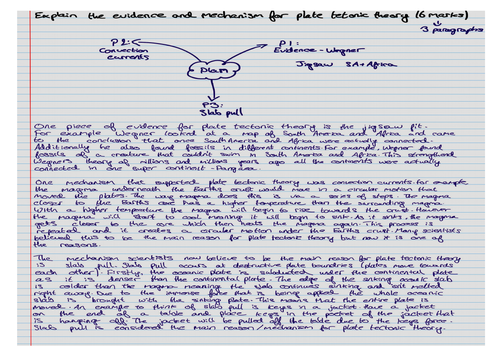 Explain the evidence and mechanism for plate tectonic theory (6 marks)
3 paragraphs
P2:
Convection
currents
P1:
Evidence - Wegner
Jigsaw SA + Africa
Plan
P3:
Slab pull
One piece of evidence for plate tectonic theory is the jigsaw fit.
For example Wegner looked at a map of South America and Africa and came
to the conclusion that once South America and Africa were actually connected.
Additionally he also found fossils in different continents for example Wegner found
fossils of a creature that couldn't swim in South America and Africa. This strengthend
Wegner's theory of millions and millions years ago all the continents were actually
connected in one super continent - Pangaea.
One mechanism that supported plate tectonic theory was convection currents for example
the magma underneath the Earths crust would move in a circular motion that
moved the plates. The way magma does this is via a series of steps. The magma
closer to the Earths core has a higher temperature than the surrounding magma.
With a higher temperature the magma will begin to rise towards the crust then
the magma will start to cool meaning it will begin to sink. As it sinks, the magma
gets closer to the core which then heats the magma again. This process is
repeated and it creates a circular motion under the Earths crust. Many scientists
believed this to be the main reason for plate tectonic theory but now it is one of
the reasons.
The mechanism scientists now believe to be the main reason for plate tectonic theory
is slab pull. Slab pull occurs at destructive plate boundries (plates move towards
each other). Firstly, the oceanic plate is subducted under the continental plate
as it is denser than the continental plate. The edge of the sinking oceanic slab
is colder than the magma meaning the slab continues sinking and isn't melted
right away. Due to the immense force that is being applied the whole oceanic
slab is brought with the sinking plate. This means that the entire plate is
moved. An example to think of slab pull is keys in a jacket. Have a jacket
on the end of a table and place keys in the pocket of the jacket that
is hanging off. The jacket will be pulled off the table due to the keys force.
Slab pull is considered the main reason/mechanism for plate tectonic theory.